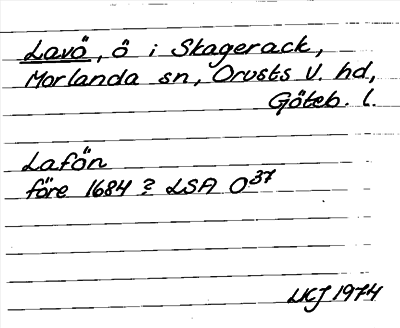 Lavö, ö i Skagerack,
Morlanda sn, Orusts V. hd,
Göteb. l.
Lafön
före 1684? LSA O37
LKJ 1974